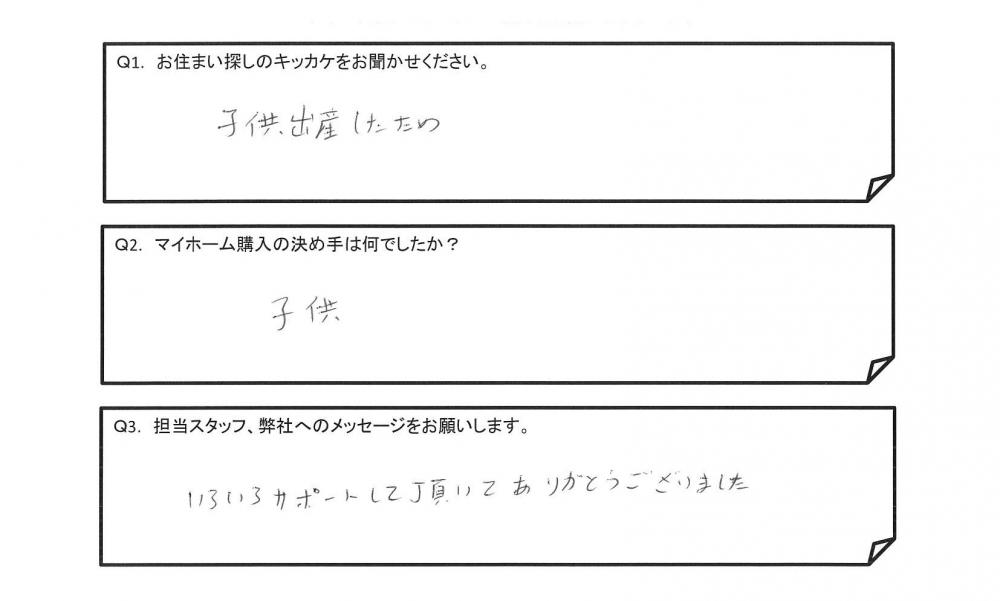 Q1. お住まい探しのキッカケをお聞かせください。
子供出産したため
Q2. マイホーム購入の決め手は何でしたか？
子供
Q3. 担当スタッフ、弊社へのメッセージをお願いします。
いろいろサポートして頂いてありがとうございました